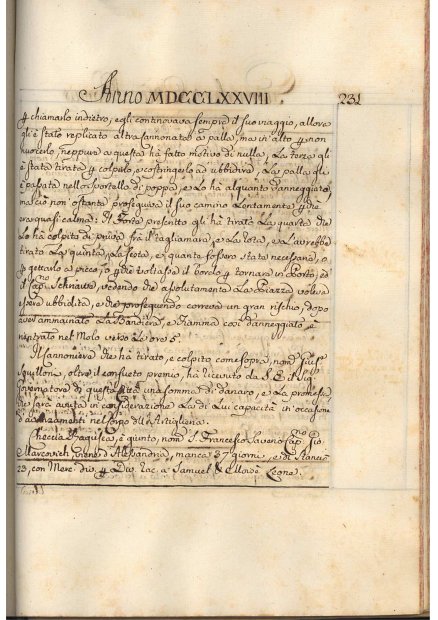 Anno MDCCLXXVIII. 231
p chiamarlo indietro, egli continovava sempre il suo viaggio, allora
gli è stato replicato altra cannonata a palla, ma in alto p non
nuocerlo, neppure a questa hà fatto motivo di nulla, La terza gli
è stata tirata p colpirlo, e costringerlo ad ubbidire, La palla gli
è passata nello sportello di poppa, e Lo hà alquanto danneggiato,
mà ciò non ostante proseguiva il suo camino Lentamente p che
era quasi calma: Il Forte gli hà tirato La quarta che
Lo hà colpito di prua frà il tagliamare, e La rota, e Lavrebbe
tirato La quinta, La sesta, e quante fossero state necessarie, o
p gettarlo a picco, o che voltasse il bordo p tornare in Porto,
il Cap.no Schnautz, vedendo che assolutamente La Piazza voleva
essere ubbidita, e che proseguendo correva un gran rischio, dopo
aver ammainato La Bandiera, e Fiamma così danneggiato, è
rientrato nel Molo verso Le ore 5.
Il Cannoniere che hà tirato, e colpito come sopra, nom.
Aquilloni, oltre il consueto premio, hà ricevuto da S. E. il Sig.
Governatore di questa Città una somma di danaro, e La promessa
che sarà avuta in considerazione La di Lui capacità in occasione
d'avanzamenti nel Corpo dll'Artiglieria.
Checcia Ragusea, è giunto, nom. S. Francesco Saverio Cap.no Gio.
Marcovich, viene d'Alessandria, manca 37 giorni, e di Stancio
23, con Merc. div. p Div. rac. a Samuel e Moisè Leone.